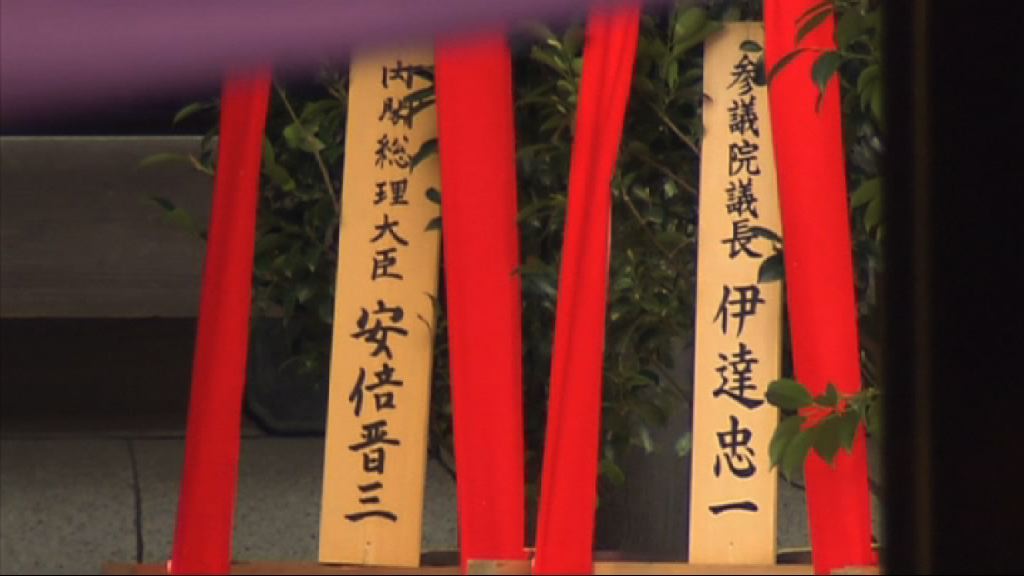 参議院議長 伊達忠一
内閣総理大臣 安倍晋三